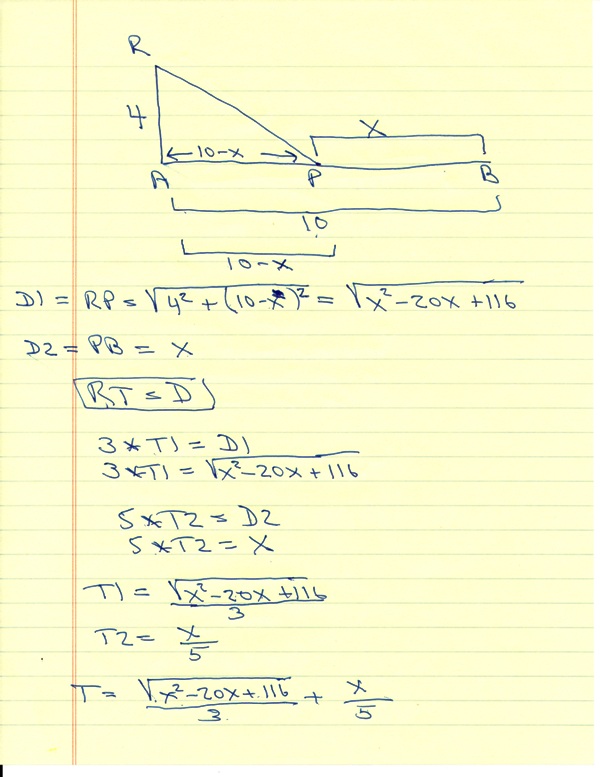 R
4
X
← 10-x →
A P B
10
10-x
D1 = RP = √4² + (10-x)² = √x² - 20x + 116
D2 = PB = x
RT = D
3 * T1 = D1
3 * T1 = √x² - 20x + 116
5 * T2 = D2
5 * T2 = X
T1 = √x² - 20x + 116 / 3
T2 = x / 5
T = √x² - 20x + 116 / 3 + x / 5